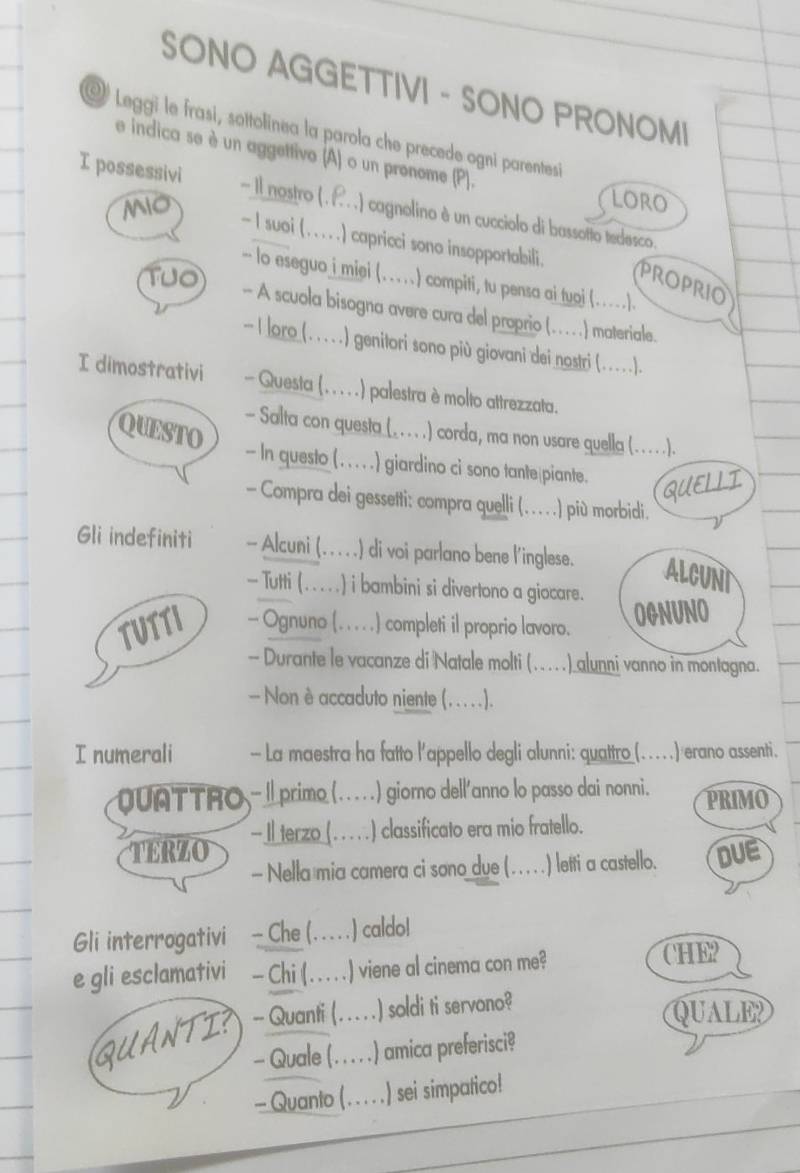 SONO AGGETTIVI - SONO PRONOMI
Leggi le frasi, sottolinea la parola che precede ogni parentesi
e indica se è un aggettivo (A) o un pronome (P).
I possessivi
MIO
TUO
LORO
PROPRIO
- Il nostro (. P. . .) cagnolino è un cucciolo di bassotto tedesco.
- I suoi (. . . . .) capricci sono insopportabili.
- Io eseguo i miei (. . . . .) compiti, tu pensa ai tuoi (. . . . .).
- A scuola bisogna avere cura del proprio (. . . . .) materiale.
- I loro (. . . . .) genitori sono più giovani dei nostri (. . . . .).
I dimostrativi
QUESTO
QUELLI
- Questa (. . . . .) palestra è molto attrezzata.
- Salta con questa (. . . . .) corda, ma non usare quella (. . . . .).
- In questo (. . . . .) giardino ci sono tante piante.
- Compra dei gessetti: compra quelli (. . . . .) più morbidi.
Gli indefiniti
TUTTI
ALCUNI
OGNUNO
- Alcuni (. . . . .) di voi parlano bene l'inglese.
- Tutti (. . . . .) i bambini si divertono a giocare.
- Ognuno (. . . . .) completi il proprio lavoro.
- Durante le vacanze di Natale molti (. . . . .) alunni vanno in montagna.
- Non è accaduto niente (. . . . .).
I numerali
QUATTRO
TERZO
PRIMO
DUE
- La maestra ha fatto l'appello degli alunni: quattro (. . . . .) erano assenti.
- Il primo (. . . . .) giorno dell'anno lo passo dai nonni.
- Il terzo (. . . . .) classificato era mio fratello.
- Nella mia camera ci sono due (. . . . .) letti a castello.
Gli interrogativi
e gli esclamativi
QUANTI?
CHE?
QUALE?
- Che (. . . . .) caldo!
- Chi (. . . . .) viene al cinema con me?
- Quanti (. . . . .) soldi ti servono?
- Quale (. . . . .) amica preferisci?
- Quanto (. . . . .) sei simpatico!